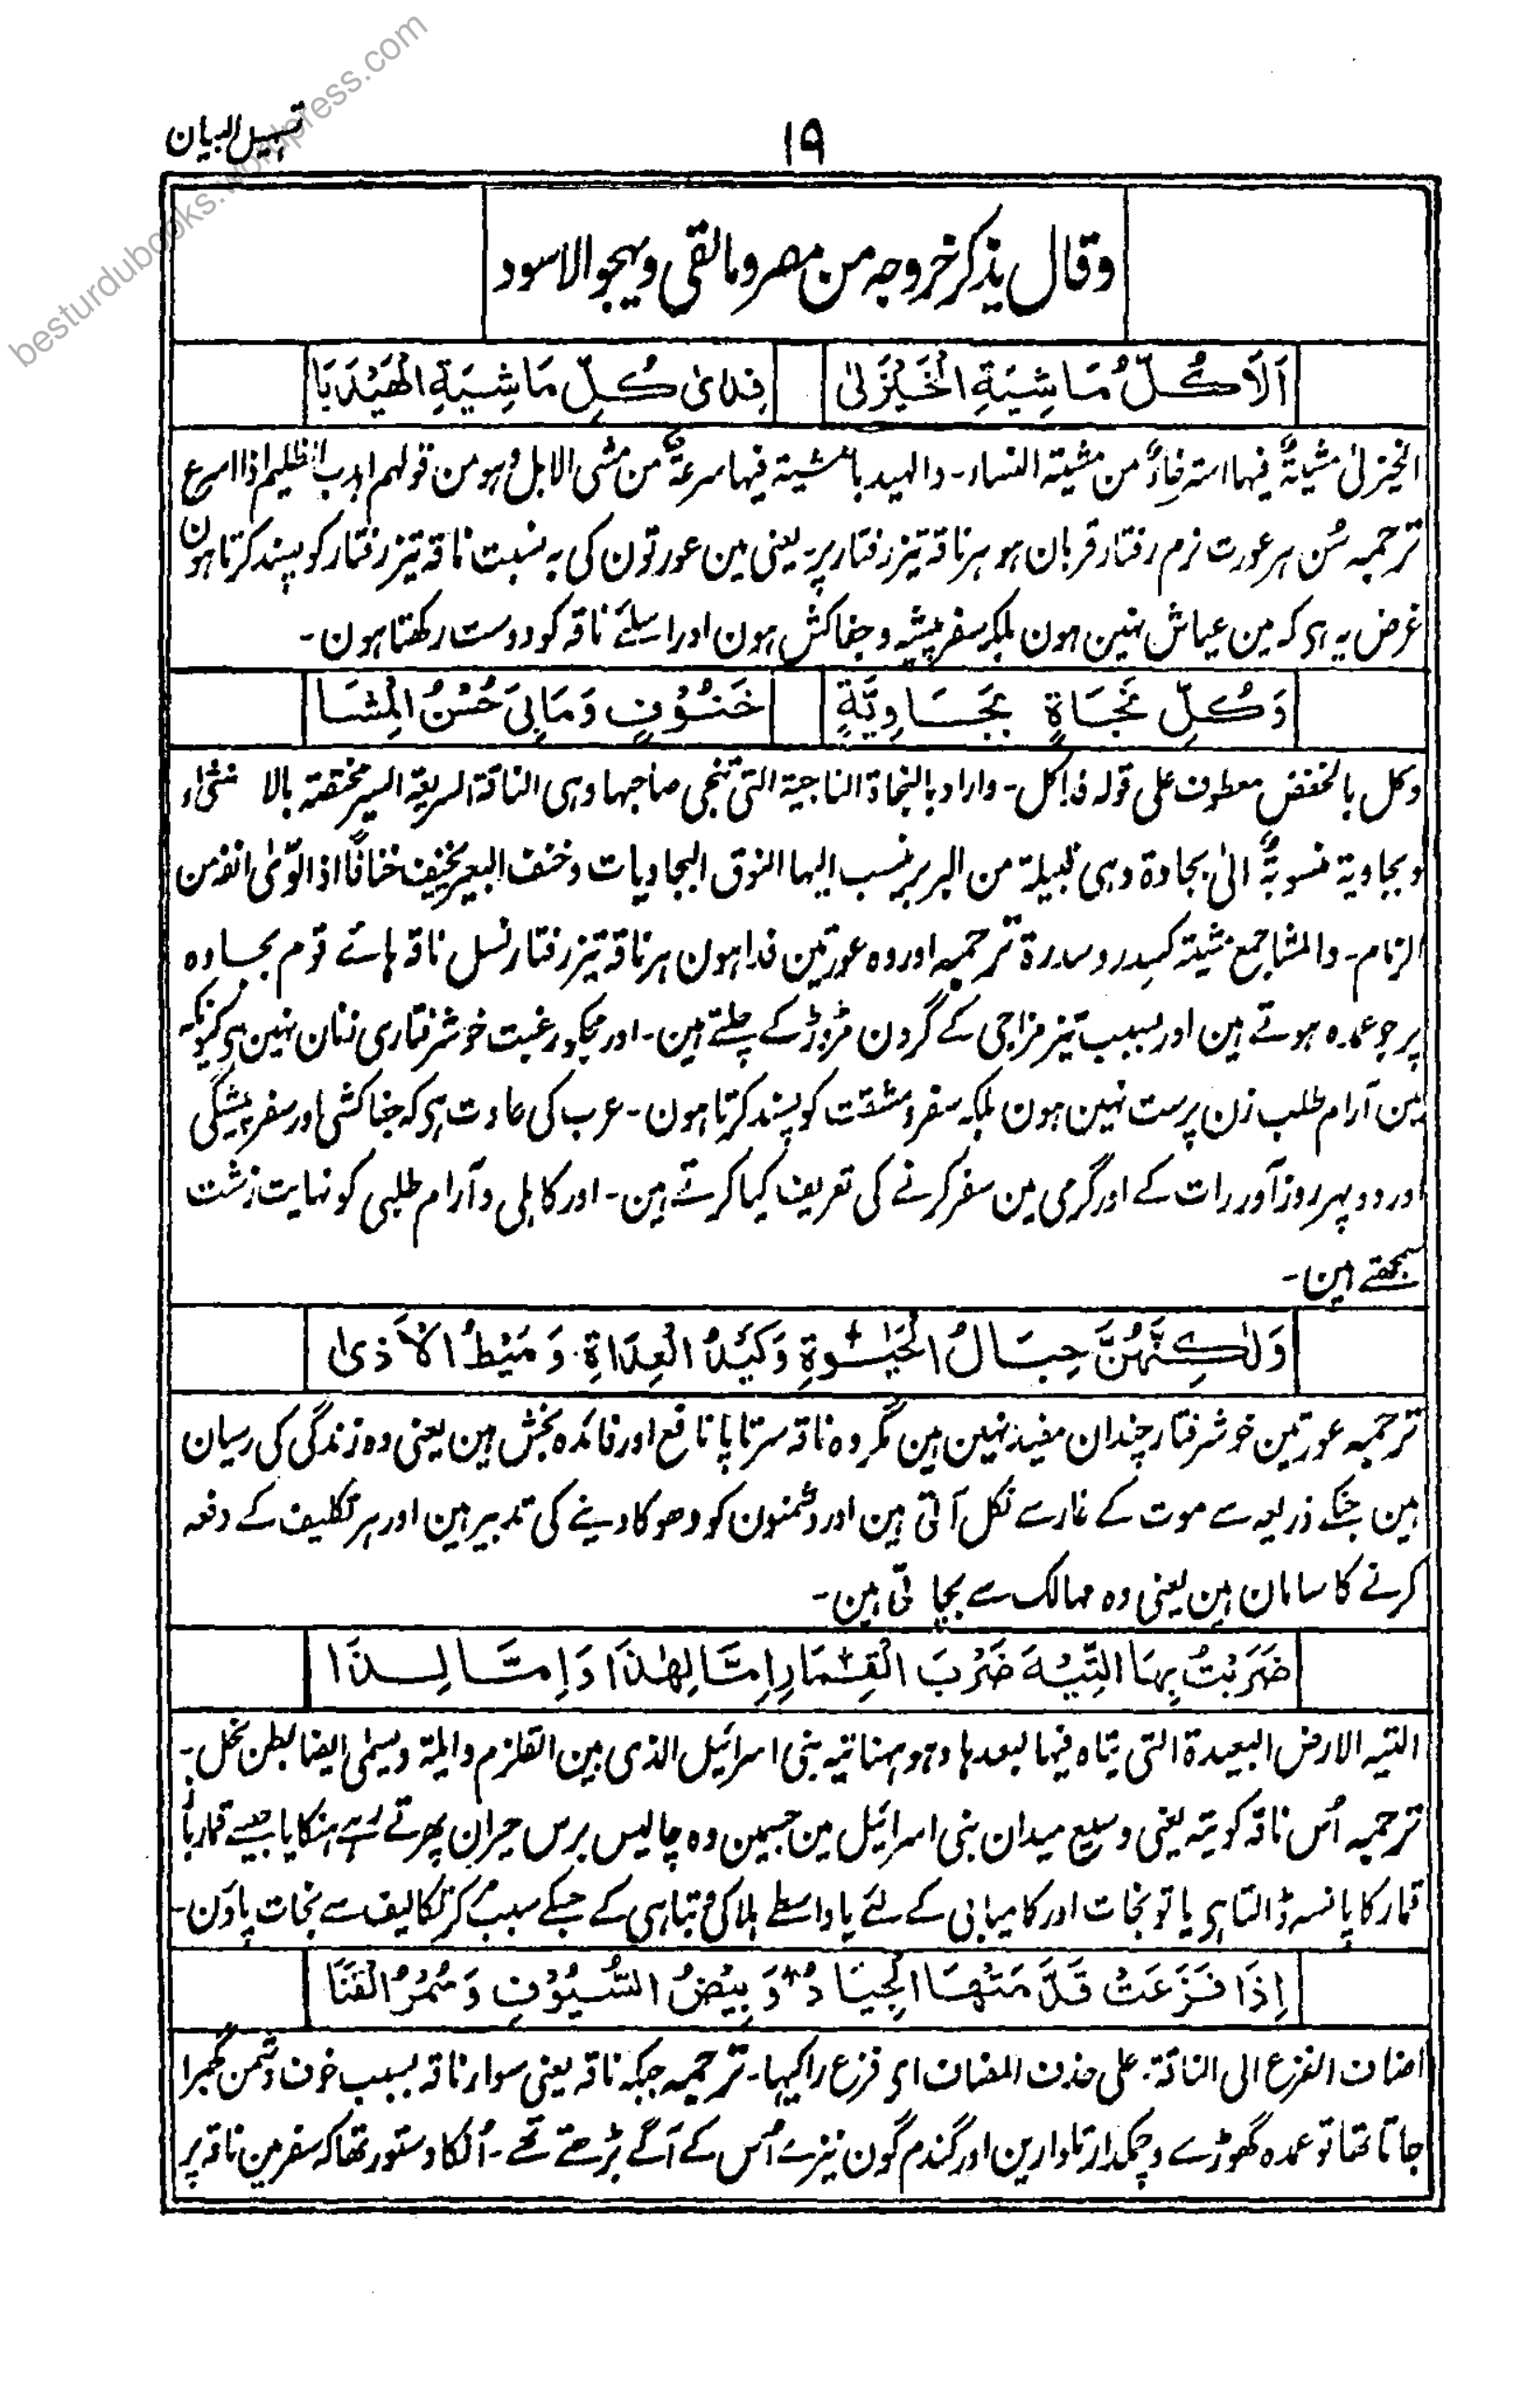 besturdubooks.wordpress.com
تسہیل البیان
۱۹
وقال یذکر خروجہ من مصر وما لقی ویہجو الاسود
اَلاَ كُلُّ مَاشِيَةِ الْخَيْزَلىٰ فِدىٰ كُلِّ مَاشِيَةِ الْهَيْدَبَا
الخیزلیٰ مشیۃٌ فیہا استرخاءٌ من مشیۃ النساء۔ والہیدبا مشیۃ فیہا سرعۃٌ من مشی الابل وہو من قولہم اہدب الظلیم اذا اسرع
ترجمہ سُن ہر عورت نرم رفتار قربان ہو ہر ناقہ تیز رفتار پر۔ یعنی مین عورتون کی بہ نسبت ناقہ تیز رفتار کو پسند کرتا ہون
غرض یہ ہی کہ مین عیاش نہین ہون بلکہ سفر پیشہ و جفاکش ہون اور اسلئے ناقہ کو دوست رکھتا ہون۔
وَكُلِّ نَجَاةٍ بَجَاوِيَّةٍ خَنُوْفٍ وَمَابِىَ حُسْنُ الْمِشَا
وکل بالخفض معطوف علی قولہ کل۔ واراد بالنجاۃ الناجیۃ التی تنجی صاحبہا وہی الناقۃ السریعۃ السیر مختصۃ بالا
وبجاویۃ منسوبۃٌ الیٰ بجاوۃ وہی قبیلۃ من البربر ینسب الیہا النوق البجاویات وخنف البعیر یخنف خنافًا اذا لوّیٰ انفہ من
الزمام۔ والمشا جمع مشیۃ کسدر وسدرۃ ترجمہ اور وہ عورتین فدا ہون ہر ناقہ تیز رفتار نسل ناقہ ہائے قوم بجاوہ
پر جو عمدہ ہوتے ہین اور بسبب تیز مزاجی کے گردن مڑوڑ کے چلتے ہین۔ اور مجکو رغبت خوشرفتاری زنان نہین ہی کیونکہ
مین آرام طلب زن پرست نہین ہون بلکہ سفر و مشقت کو پسند کرتا ہون۔ عرب کی عادت ہی کہ جفاکشی اور سفر پیشگی
اور دوپہر روز اور رات کے اور گرمی مین سفر کرنے کی تعریف کیا کرتے ہین۔ اور کاہلی و آرام طلبی کو نہایت زشت
سمجھتے ہین۔
وَلٰكِنَّهُنَّ حِبَالُ الْحَيٰوةِ وَكَيْدُ الْعِدَاةِ وَمَيْطُ الْاَذىٰ
ترجمہ عورتین خوشرفتار چندان مفید نہین ہین مگر وہ ناقہ سرتاپا نافع اور فائدہ بخش ہین یعنی وہ زندگی کی رسیان
ہین جنکے ذریعہ سے موت کے غار سے نکل آتی ہین اور دشمنون کو دھوکا دینے کی تدبیر ہین اور ہر تکلیف کے دفعہ
کرنے کا سامان ہین یعنی وہ مہالک سے بچاتی ہین۔
ضَرَبْتُ بِهَا التِّيْهَ ضَرْبَ الْقِمَارِ اِمَّا لِهٰذَا وَاِمَّا لِذَا
التیہ الارض البعیدۃ التی یتاہ فیہا لبعدہا وہو ہہنا تیہ بنی اسرائیل الذی بین القلزم وایلۃ ویسمیٰ ایضا بطن نخل۔
ترجمہ اُس ناقہ کو تیہ یعنی وسیع میدان بنی اسرائیل مین جسمین وہ چالیس برس حیران پھرتے رہے ہنکایا جیسے قمارباز
قمار کا پانسہ ڈالتا ہی یا تو نجات اور کامیابی کے لئے یا واسطے ہلاکی و تباہی کے جسکے سبب مر کر تکالیف سے نجات پاؤن۔
اِذَا فَزَعَتْ قَدَّمَتْهَا الْجِيَادُ وَبِيْضُ السُّيُوْفِ وَسُمْرُ الْقَنَا
اضاف الفزع الی الناقۃ علی حذف المضاف ای فزع راکبہا۔ ترجمہ جبکہ ناقہ یعنی سوار ناقہ بسبب خوف دشمن گھبرا
جاتا تھا تو عمدہ گھوڑے و چمکدار تلوارین اور گندم گون نیزے اُس کے آگے بڑھتے تھے۔ اُنکا دستور تھا کہ سفر مین ناقہ پر